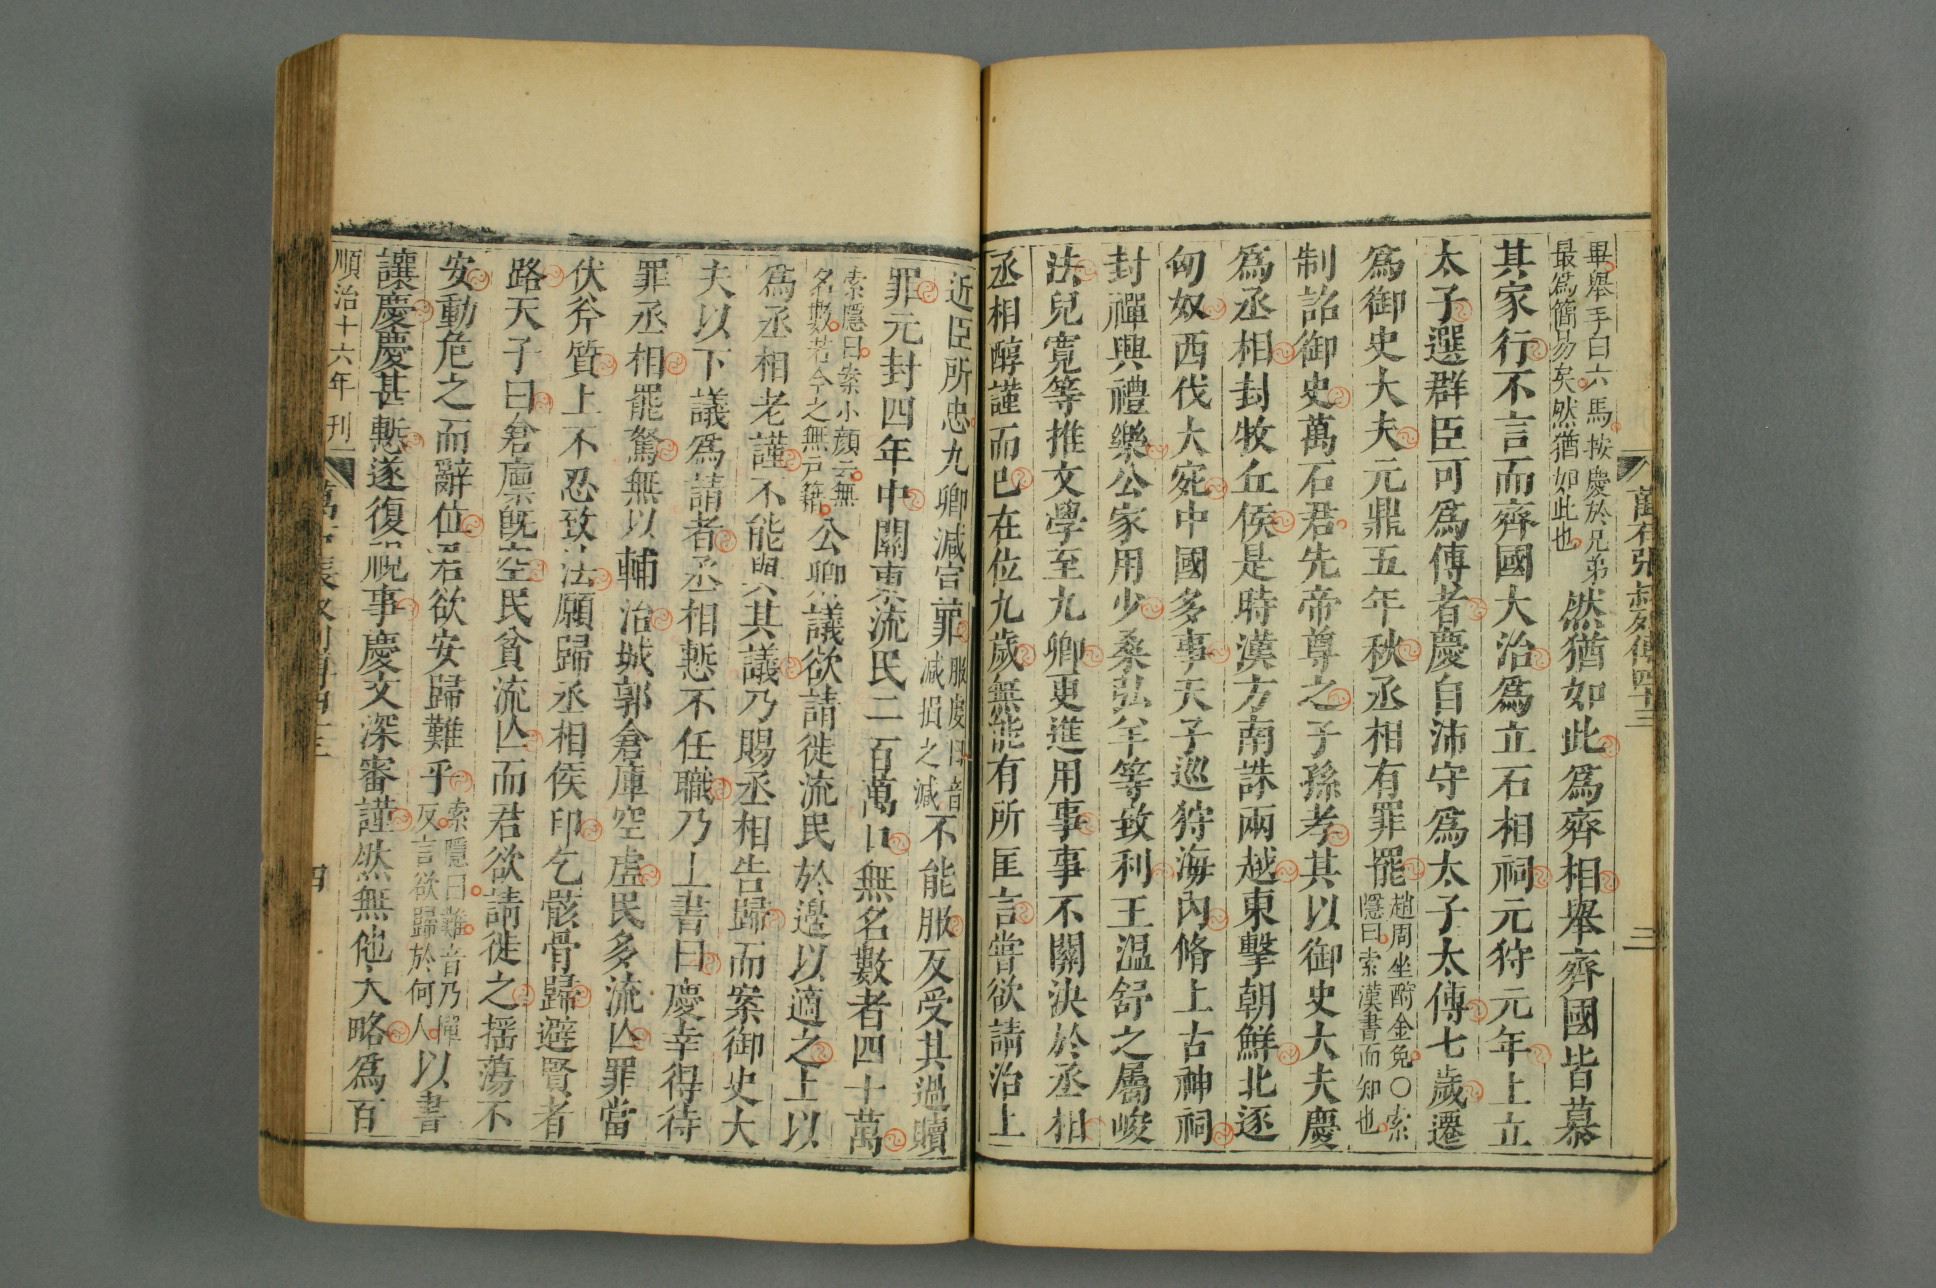 萬石張叔列傳四十三
三
畢舉手曰六馬按慶於兄弟
最爲簡易矣然猶如此也
然猶如此爲齊相舉齊國皆慕
其家行不言而齊國大治爲立石相祠元狩元年上立
太子選群臣可爲傅者慶自沛守爲太子太傅七歲遷
爲御史大夫元鼎五年秋丞相有罪罷
趙周坐酎金免○索
隱曰索漢書而知也
制詔御史萬石君先帝尊之子孫孝其以御史大夫慶
爲丞相封牧丘侯是時漢方南誅兩越東擊朝鮮北逐
匈奴西伐大宛中國多事天子巡狩海內脩上古神祠
封禪興禮樂公家用少桑弘羊等致利王溫舒之屬峻
法兒寬等推文學至九卿更進用事事不關決於丞相
丞相醇謹而已在位九歲無能有所匡言嘗欲請治上
近臣所忠九卿減宣罪
服虔曰音
減損之減
不能服反受其過贖
罪元封四年中關東流民二百萬口無名數者四十萬
索隱曰索小顏云無
名數若今之無戶籍
公卿議欲請徙流民於邊以適之上以
爲丞相老謹不能與其議乃賜丞相告歸而案御史大
夫以下議爲請者丞相慙不任職乃上書曰慶幸得待
罪丞相罷駑無以輔治城郭倉庫空虛民多流亾罪當
伏斧質上不忍致法願歸丞相侯印乞骸骨歸避賢者
路天子曰倉廩旣空民貧流亾而君欲請徙之搖蕩不
安動危之而辭位君欲安歸難乎
索隱曰難音乃憚
反言欲歸於何人
以書
讓慶慶甚慙遂復視事慶文深審謹然無他大略爲百
順治十六年刊
萬石張叔列傳四十三
四